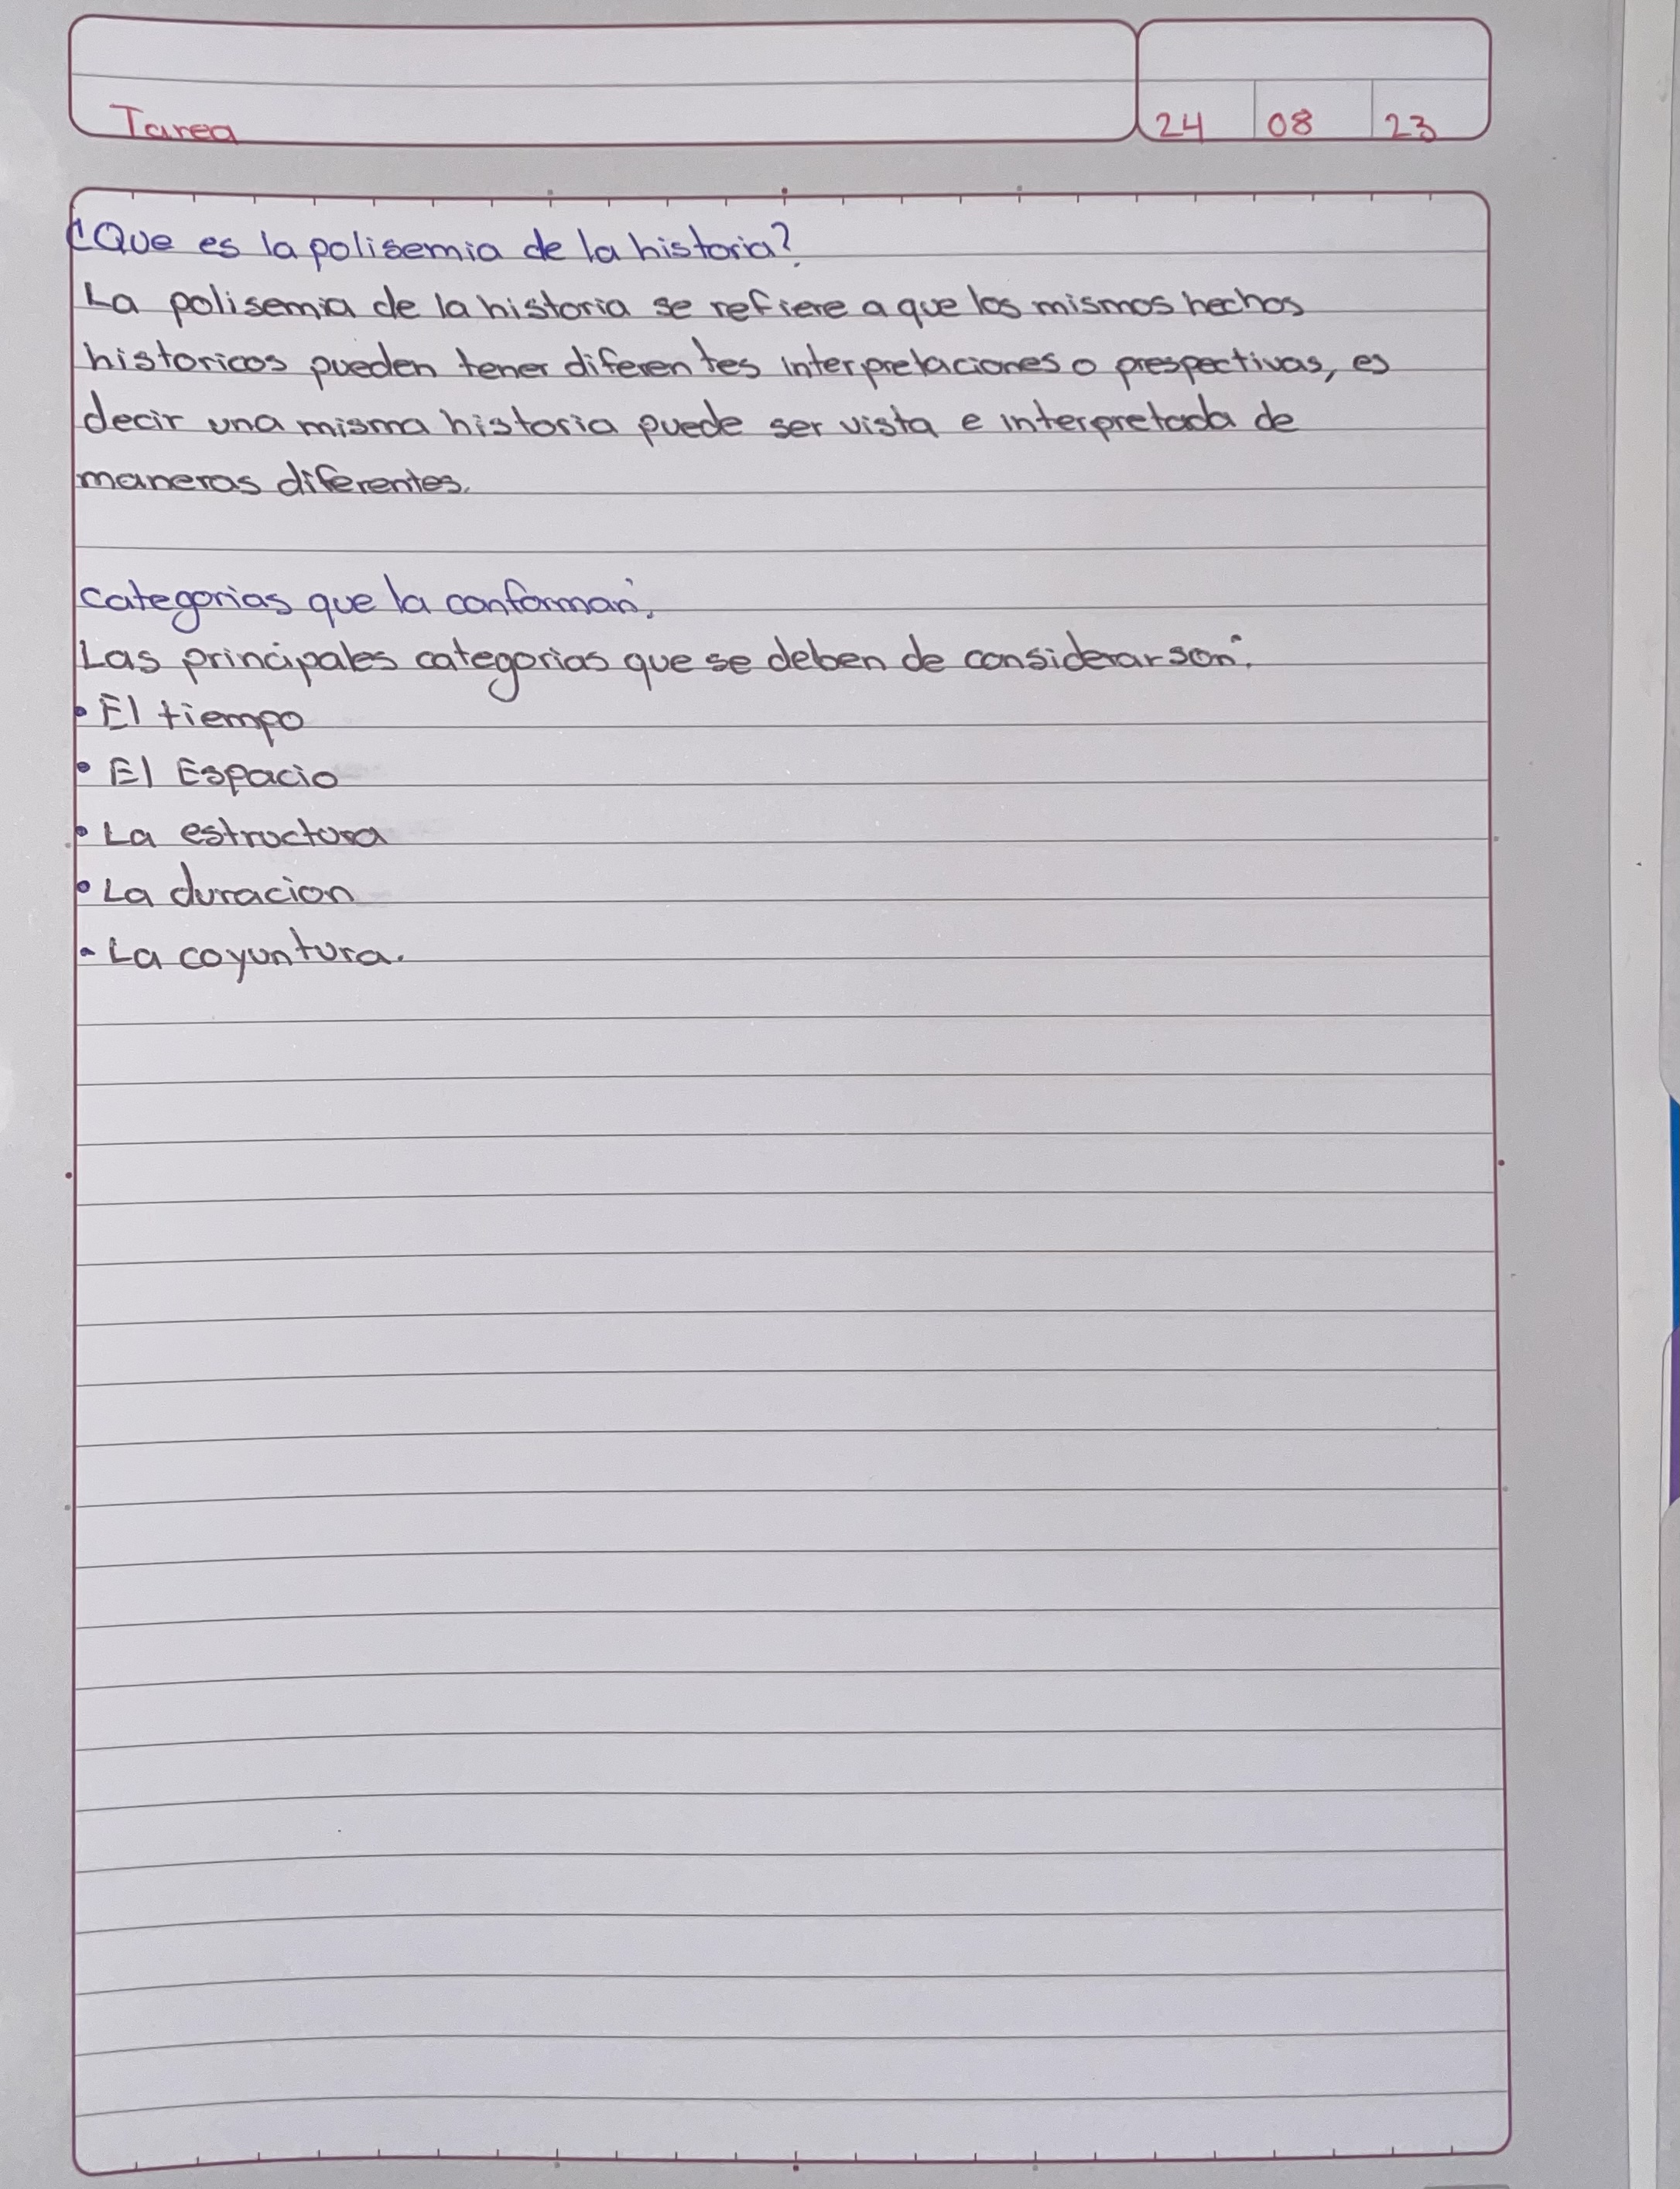 Tarea
24 08 23
¿Que es la polisemia de la historia?
La polisemia de la historia se refiere a que los mismos hechos
historicos pueden tener diferentes interpretaciones o prespectivas, es
decir una misma historia puede ser vista e interpretada de
maneras diferentes.
categorias que la conforman:
Las principales categorias que se deben de considerar son:
• El tiempo
• El Espacio
• La estructura
• La duracion
• La coyuntura.